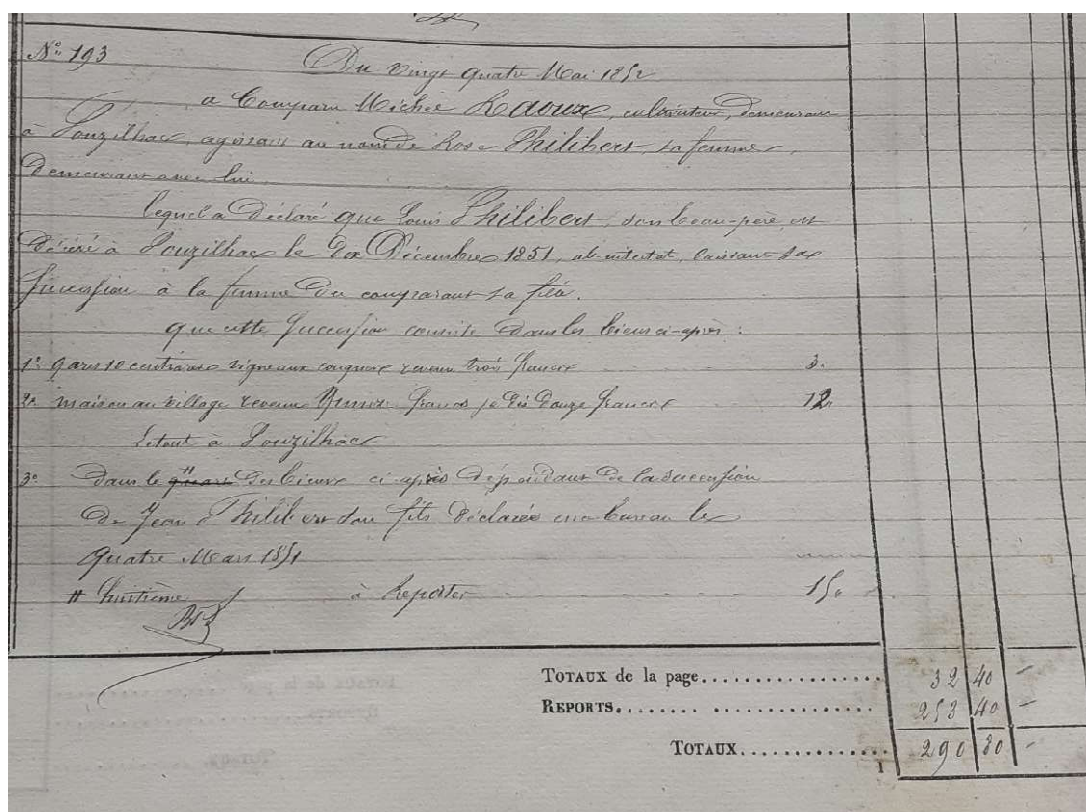 N° 193
Du vingt quatre Mai 1852
a Comparu Michel Raoux, cultivateur, demeurant
à Pouzilhac, agissant au nom de Rose Philibert, sa femme,
Demeurant avec lui
lequel a Déclaré que Louis Philibert, son beau-père, est
Décédé à Pouzilhac le Décembre 1851, ab-intestat, laissant sa
Succession à la femme du comparant sa fille.
que cette Succession consiste Dans les biens ci-après :
1° 9 ares 10 centiares vignes revenu trois francs 3.
2° maison au village revenu francs je dis Douze francs 12
le tout à Pouzilhac
3° Dans le quart des biens ci-après dépendant De la succession
De Jean Philibert son fils Déclarée en ce bureau le
quatre Mars 1851
# huitième à Reporter 15.
TOTAUX de la page 32 40 -
REPORTS 40 -
TOTAUX 290 80 -
1